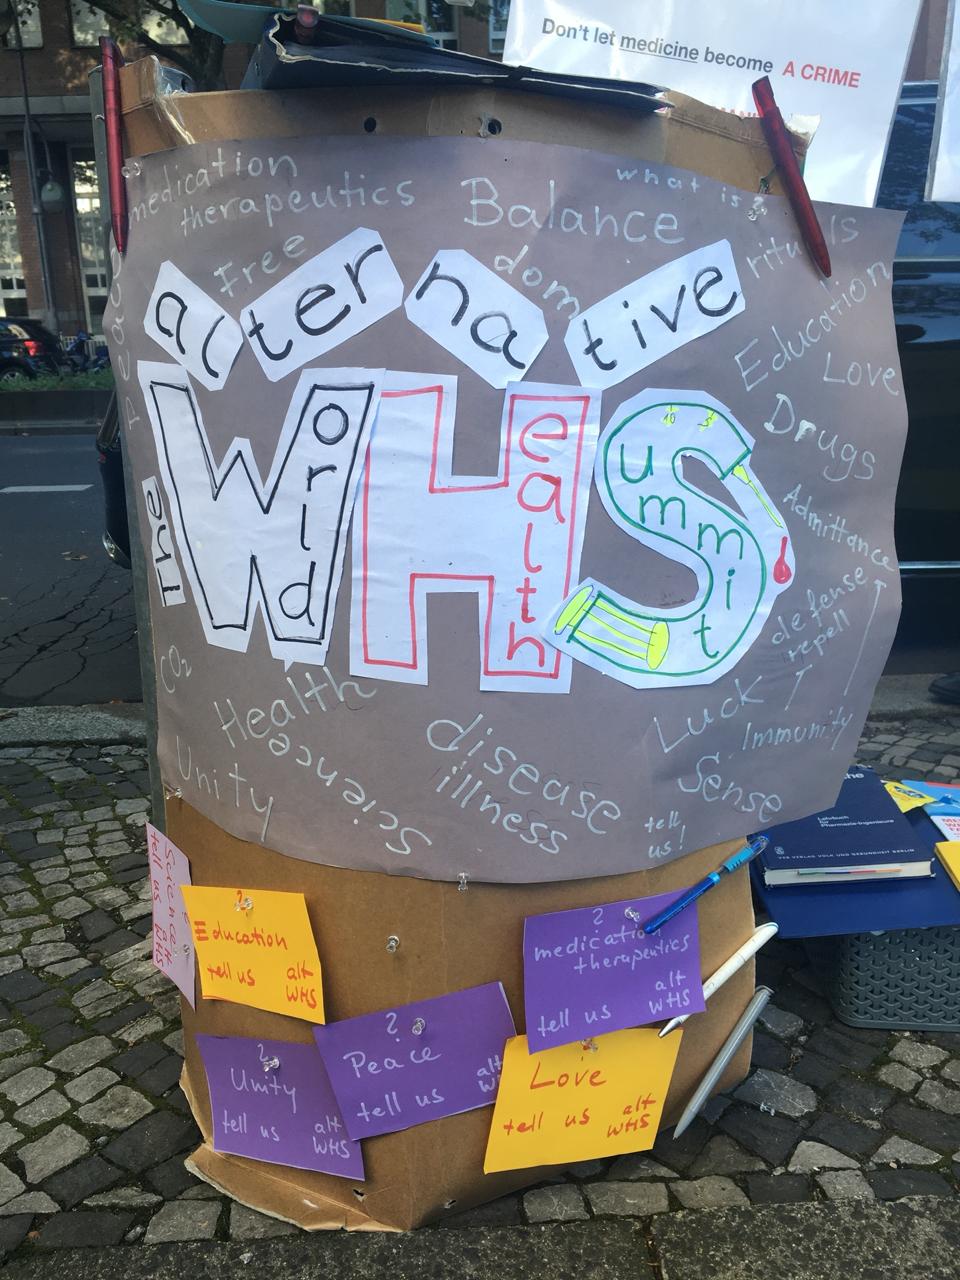 Don't let medicine become A CRIME
medication
therapeutics
Free
Balance
dom
what is?
rituals
Education
Love
Drugs
Admittance
defense
repell
Peace
the
alternative
World
Health
Summit
10
CO2
Health
Science
Unity
disease
illness
Luck
Immunity
Sense
tell
us!
Lehrbuch
für
Pharmazie-Ingenieure
VEB VERLAG VOLK UND GESUNDHEIT BERLIN
Science
tell us alt
WHS
?
Education
tell us alt
WHS
?
medication
therapeutics
tell us alt
WHS
?
Unity
tell us alt
WHS
?
Peace
tell us alt
?
Love
tell us alt
WHS